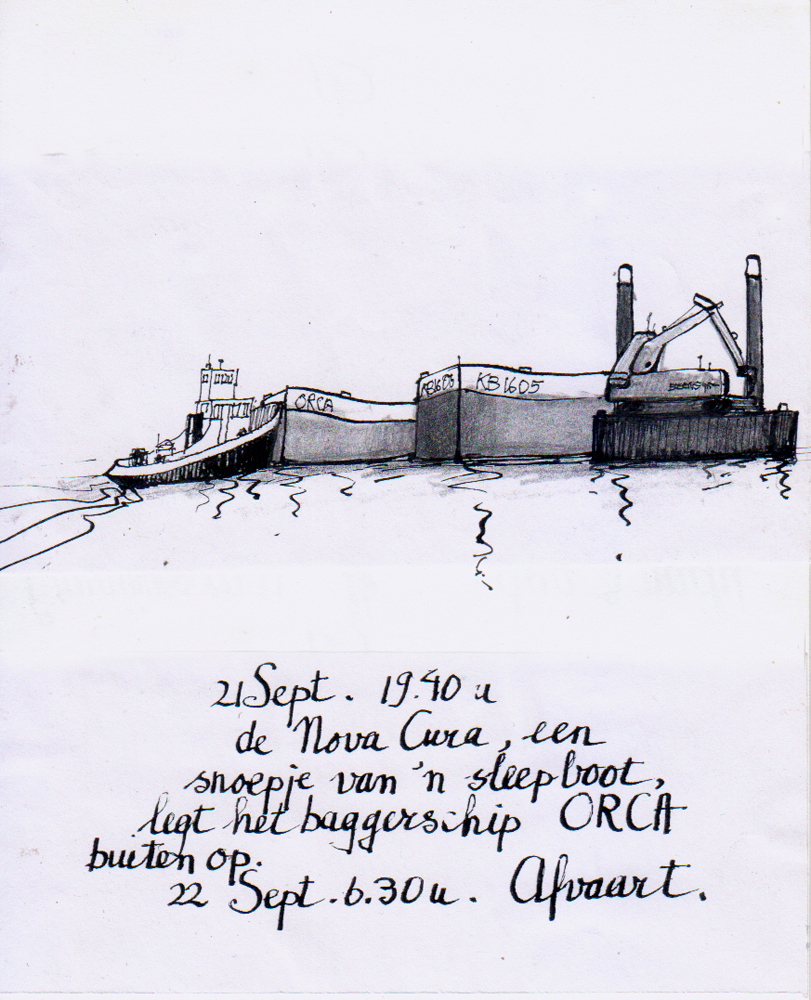 ORCA
KB1606
KB1605
21 Sept. 19.40 u
de Nova Cura, een
snoepje van 'n sleepboot,
legt het baggerschip ORCA
buiten op.
22 Sept. 6.30 u. Afvaart.